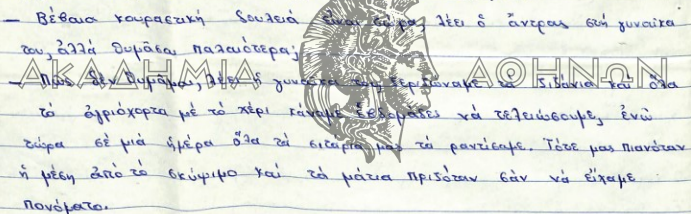 — Βέβαια κουραστική δουλειά εἶναι τώρα, λέει ὁ ἄντρας στή γυναίκα
του, ἀλλά θυμᾶσαι παλαιότερα;
— Πῶς δέν θυμᾶμαι, λέει ἡ γυναίκα του, ξεριζώναμε τά ζιζάνια καί ὅλα
τά ἀγριόχορτα μέ τό χέρι κάναμε ἑβδομάδες νά τελειώσουμε, ἐνῶ
τώρα σέ μιά ἡμέρα ὅλα τά σιτάρια μας τά ραντίσαμε. Τότε μας πιανόταν
ἡ μέση ἀπό τό σκύψιμο καί τά μάτια πριζόταν σάν νά εἴχαμε
πονόματο.
ΑΚΑΔΗΜΙΑ ΑΘΗΝΩΝ